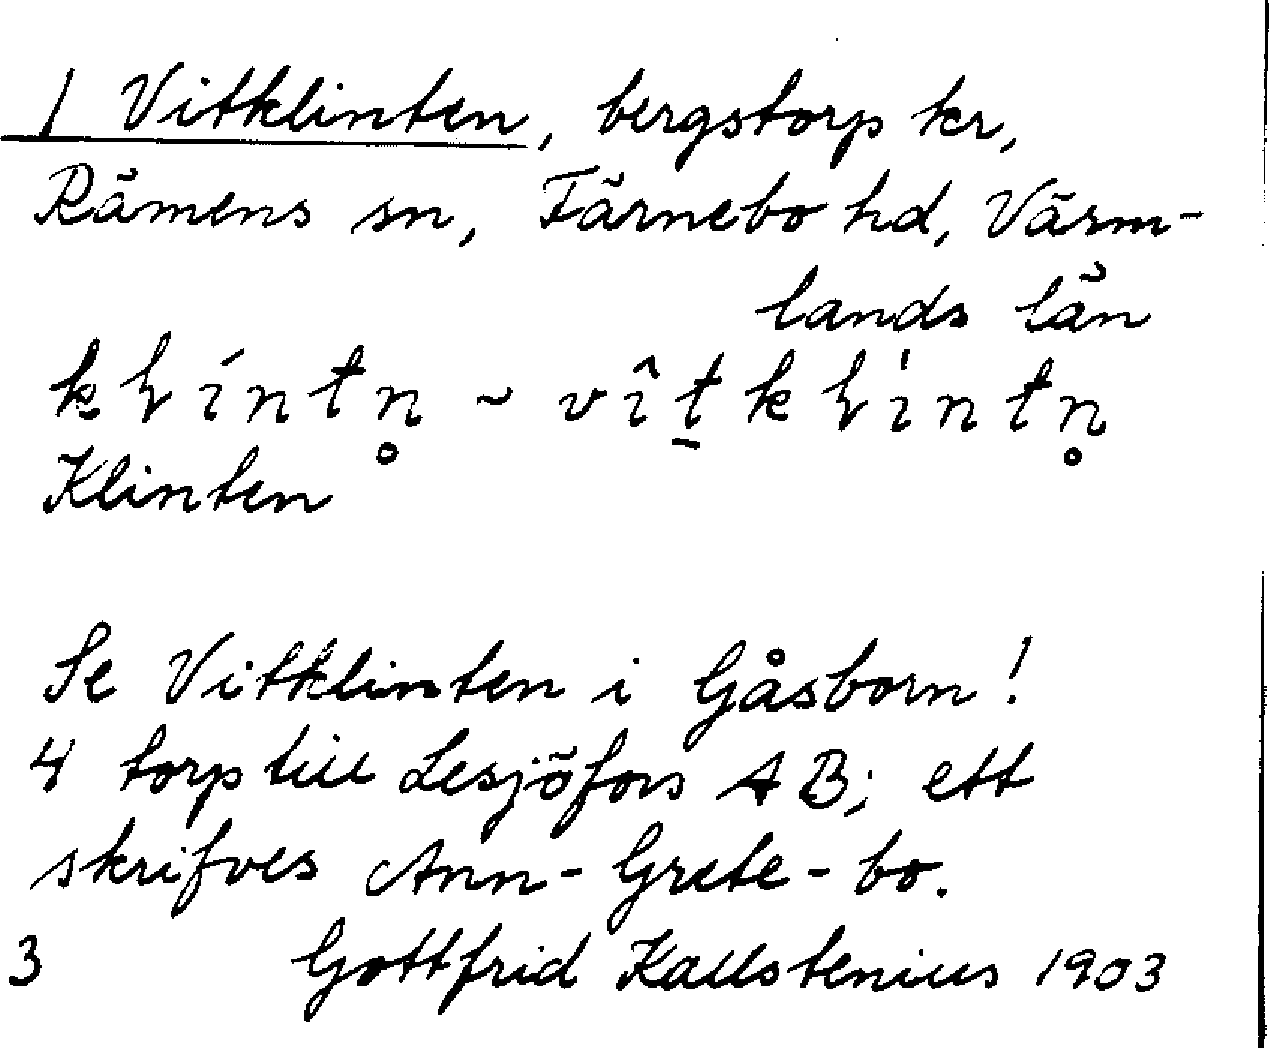 1 Vitklinten, bergstorp kr,
Rämens sn, Färnebo hd, Värm-
lands län
Klinten
Se Vitklinten i Gåsborn!
4 torp till Lesjöfors AB; ett
skrifves Ann-Grete-bo.
3 Gottfrid Kallstenius 1903